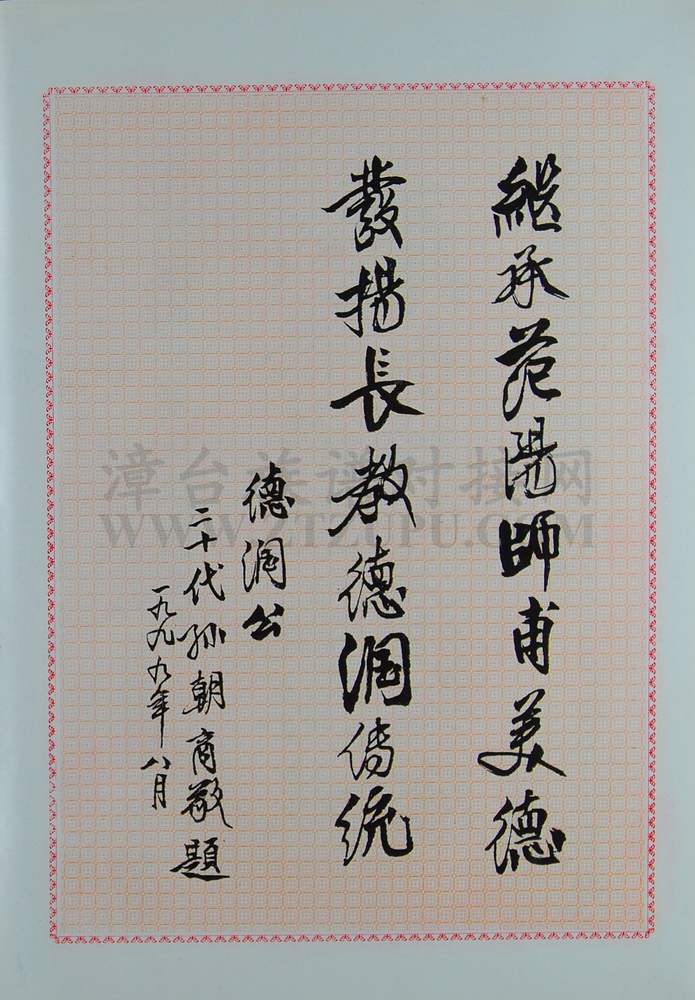 繼承范陽師甫美德
發揚長教德潤傳統
德潤公
二十代孙朝商敬題
一九九九年八月
漳台族谱对接网
WWW.ZTZUPU.COM